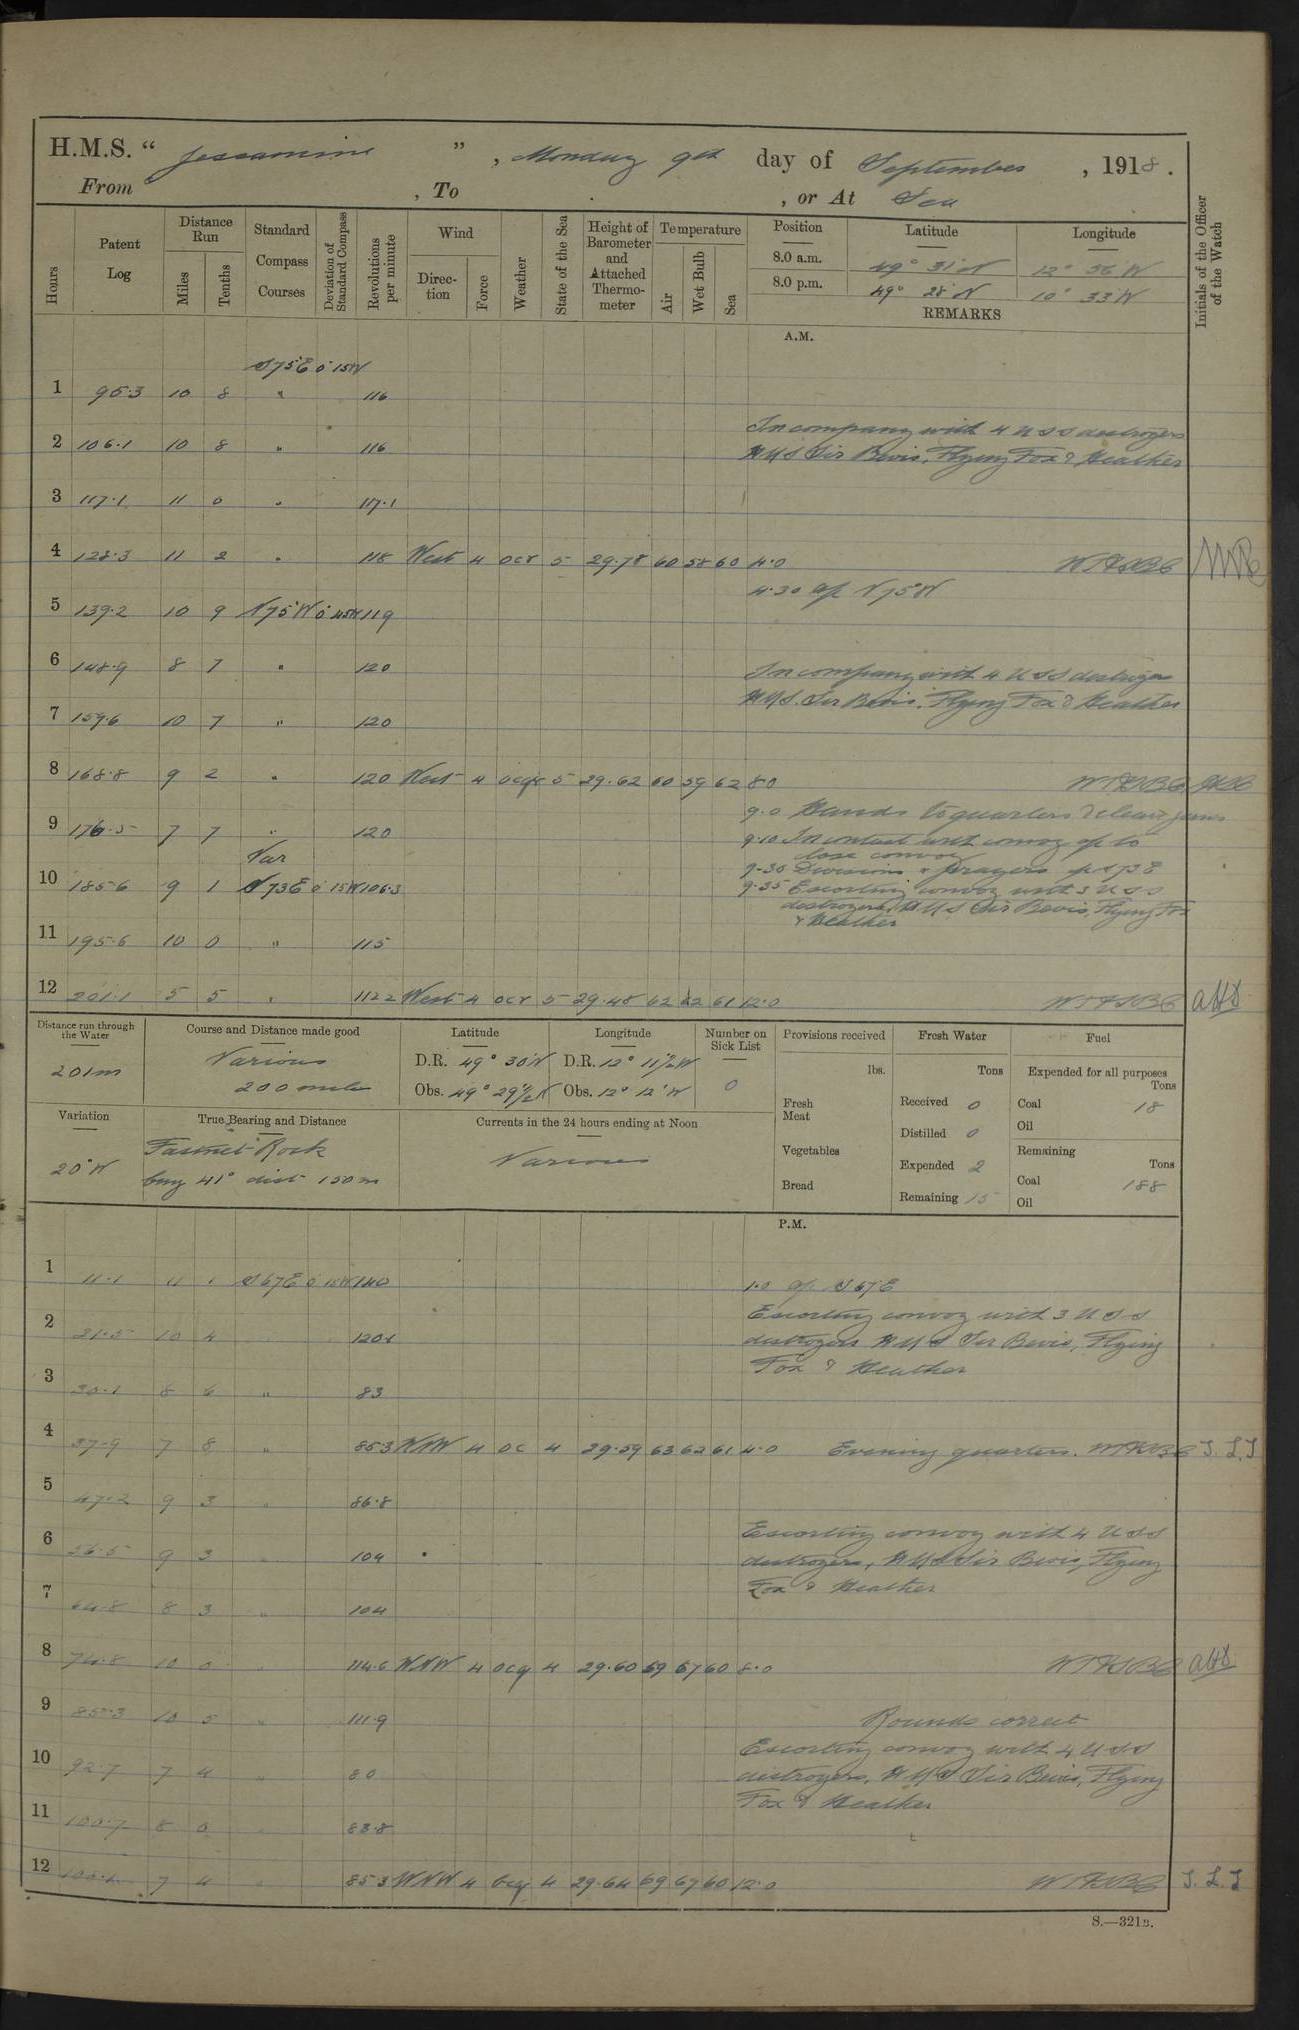 H.M.S. “ Jessamine ”, Monday 9th day of September, 1918.
From , To , or At Sea
Hours
Patent Log
Distance Run
Miles
Tenths
Standard Compass Courses
Deviation of Standard Compass
Revolutions per minute
Wind
Direction
Force
Weather
State of the Sea
Height of Barometer and Attached Thermometer
Temperature
Air
Wet Bulb
Sea
Position Latitude Longitude
8.0 a.m. 49° 31' N 12° 56' W
8.0 p.m. 49° 28' N 10° 33' W
REMARKS
Initials of the Officer of the Watch
A.M.
S 75 E 0 15W
1 95.3 10 8 " 116
In company with 4 USS destroyers
2 106.1 10 8 " 116 HMS Sir Bevis, Flying Fox & Heather
3 117.1 11 0 " 117.1
4 128.3 11 2 " 118 West 4 ocr 5 29.78 60 58 60 4.0
4.30 a/c N 75° W
5 139.2 10 9 N 75 W 0 45W 119
6 148.9 8 7 " 120 In company with 4 USS destroyer
HMS. Sir Bevis. Flying Fox & Heather
7 159.6 10 7 " 120
8 168.8 9 2 " 120 West 4 ocqr 5 29.62 60 59 62 8.0
9.0 Hands to quarters & clean guns
9 176.5 7 7 " 120 9.10 In contact with convoy a/c to
close convoy
Var
9.30 Divisions & prayers a/c S 73 E
10 185.6 9 1 S 73 E 0 15W 106.3 9.35 Escorting convoy with 3 USS
destroyers, HMS Sir Bevis, Flying Fox
& Heather
11 195.6 10 0 " 115
12 201.1 5 5 " 112.2 West 4 ocr 5 29.48 62 62 61 12.0
Distance run through the Water
201m
Course and Distance made good
Various
200 miles
Latitude
D.R. 49° 30' N
Obs. 49° 29½ N
Longitude
D.R. 12° 11½ W
Obs. 12° 12' W
Number on Sick List
0
Provisions received
lbs.
Fresh Meat
Vegetables
Bread
Fresh Water
Tons
Received 0
Distilled 0
Expended 2
Remaining 15
Fuel
Expended for all purposes
Tons
Coal 18
Oil
Remaining
Tons
Coal 188
Oil
Variation
20° W
True Bearing and Distance
Fastnet Rock
brg 41° dist 150 m
Currents in the 24 hours ending at Noon
Various
P.M.
1 11.1 11 1 S 67 E 0 15W 140 1.0 a/c S 67 E
Escorting convoy with 3 USS
2 21.5 10 4 120.1 destroyers HMS Sir Bevis, Flying
Fox & Heather
3 30.1 8 6 " 83
4 37.9 7 8 " 85.3 NNW 4 oc 4 29.59 63 62 61 4.0 Evening quarters. J.L.J
5 47.2 9 3 " 86.8
Escorting convoy with 4 USS
6 56.5 9 3 104 destroyers, HMS Sir Bevis, Flying
Fox & Heather
7 64.8 8 3 " 104
8 74.8 10 0 114.6 WNW 4 ocq 4 29.60 59 57 60 8.0
9 85.3 10 5 " 111.9 Rounds correct
Escorting convoy with 4 USS
10 92.7 7 4 80 destroyers, HMS Sir Bevis, Flying
Fox & Heather
11 100.7 8 0 83.8
12 7 4 85.3 WNW 4 ocq 4 29.64 59 57 60 12.0 J.L.J
S.—321B.